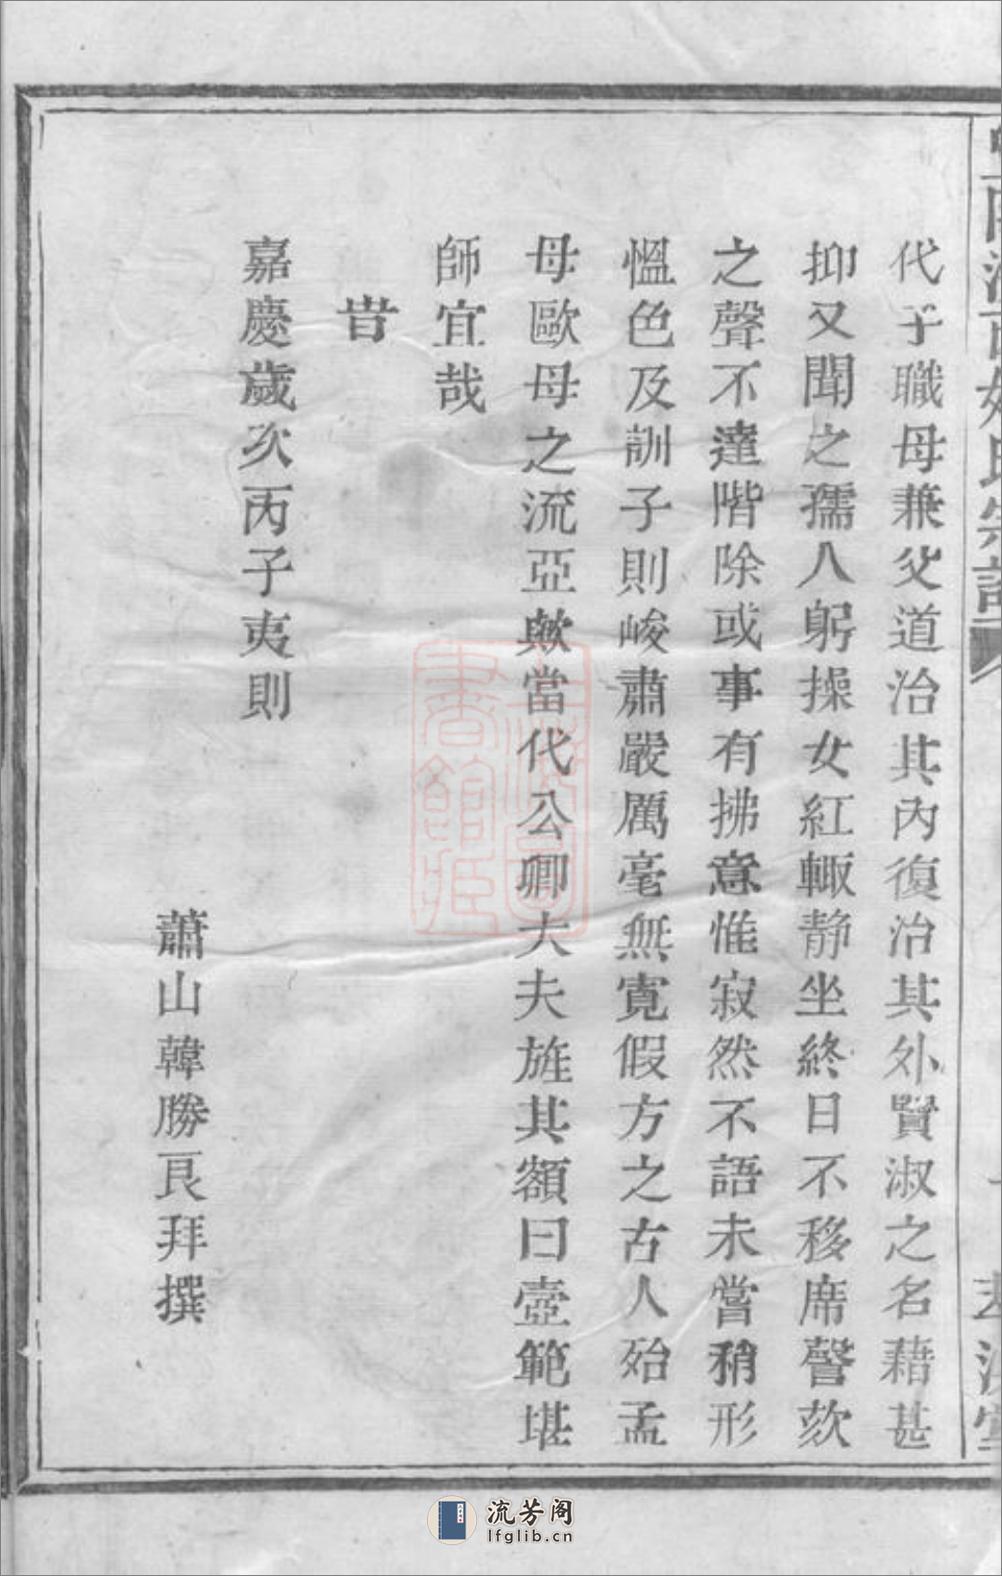 代子職母兼父道治其內復治其外賢淑之名藉甚
抑又聞之孺人躬操女紅輙静坐終日不移席謦欬
之聲不達階除或事有拂意惟寂然不語未嘗稍形
慍色及訓子則峻肅嚴厲毫無寛假方之古人殆孟
母歐母之流亞歟當代公卿大夫旌其額曰壼範堪
師宜哉
旹
嘉慶歲次丙子夷則
蕭山韓勝良拜撰
流芳阁
lfglib.cn